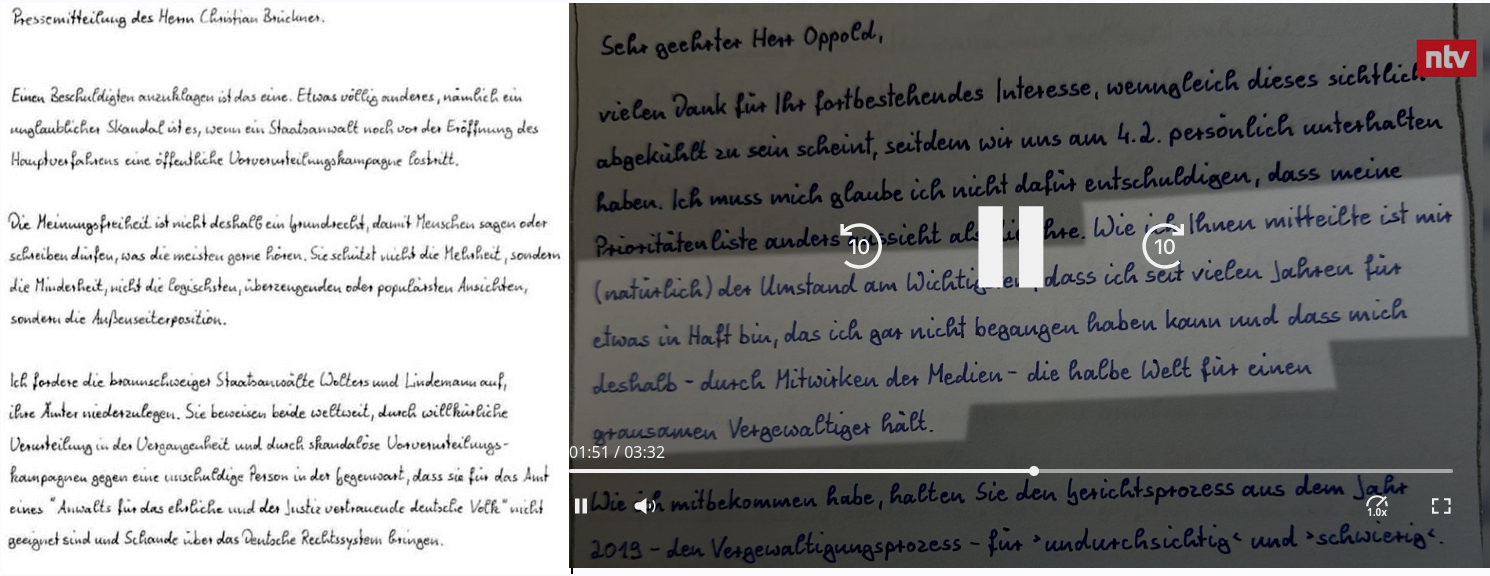 Pressemitteilung des Herrn Christian Brückner.
Einen Beschuldigten anzuklagen ist das eine. Etwas völlig anderes, nämlich ein
unglaublicher Skandal ist es, wenn ein Staatsanwalt noch vor der Eröffnung des
Hauptverfahrens eine öffentliche Vorverurteilungskampagne lostritt.
Die Meinungsfreiheit ist nicht deshalb ein Grundrecht, damit Menschen sagen oder
schreiben dürfen, was die meisten gerne hören. Sie schützt nicht die Mehrheit, sondern
die Minderheit, nicht die logischsten, überzeugenden oder populärsten Ansichten,
sondern die Außenseiterposition.
Ich fordere die braunschweiger Staatsanwälte Wolters und Lindemann auf,
ihre Ämter niederzulegen. Sie beweisen beide weltweit, durch willkürliche
Verurteilung in der Vergangenheit und durch skandalöse Vorverurteilungs-
kampagnen gegen eine unschuldige Person in der Gegenwart, dass sie für das Amt
eines "Anwalts für das ehrliche und der Justiz vertrauende deutsche Volk" nicht
geeignet sind und Schande über das Deutsche Rechtssystem bringen.
ntv
Sehr geehrter Herr Oppold,
vielen Dank für Ihr fortbestehendes Interesse, wenngleich dieses sichtlich
abgekühlt zu sein scheint, seitdem wir uns am 4.2. persönlich unterhalten
haben. Ich muss mich glaube ich nicht dafür entschuldigen, dass meine
Prioritätenliste anders aussieht als die Ihre. Wie ich Ihnen mitteilte ist mir
(natürlich) der Umstand am Wichtigsten, dass ich seit vielen Jahren für
etwas in Haft bin, das ich gar nicht begangen haben kann und dass mich
deshalb - durch Mitwirken der Medien - die halbe Welt für einen
grausamen Vergewaltiger hält.
Wie ich mitbekommen habe, halten Sie den Gerichtsprozess aus dem Jahr
2019 - den Vergewaltigungsprozess - für >undurchsichtig< und >schwierig<.
10
10
01:51 / 03:32
1.0x